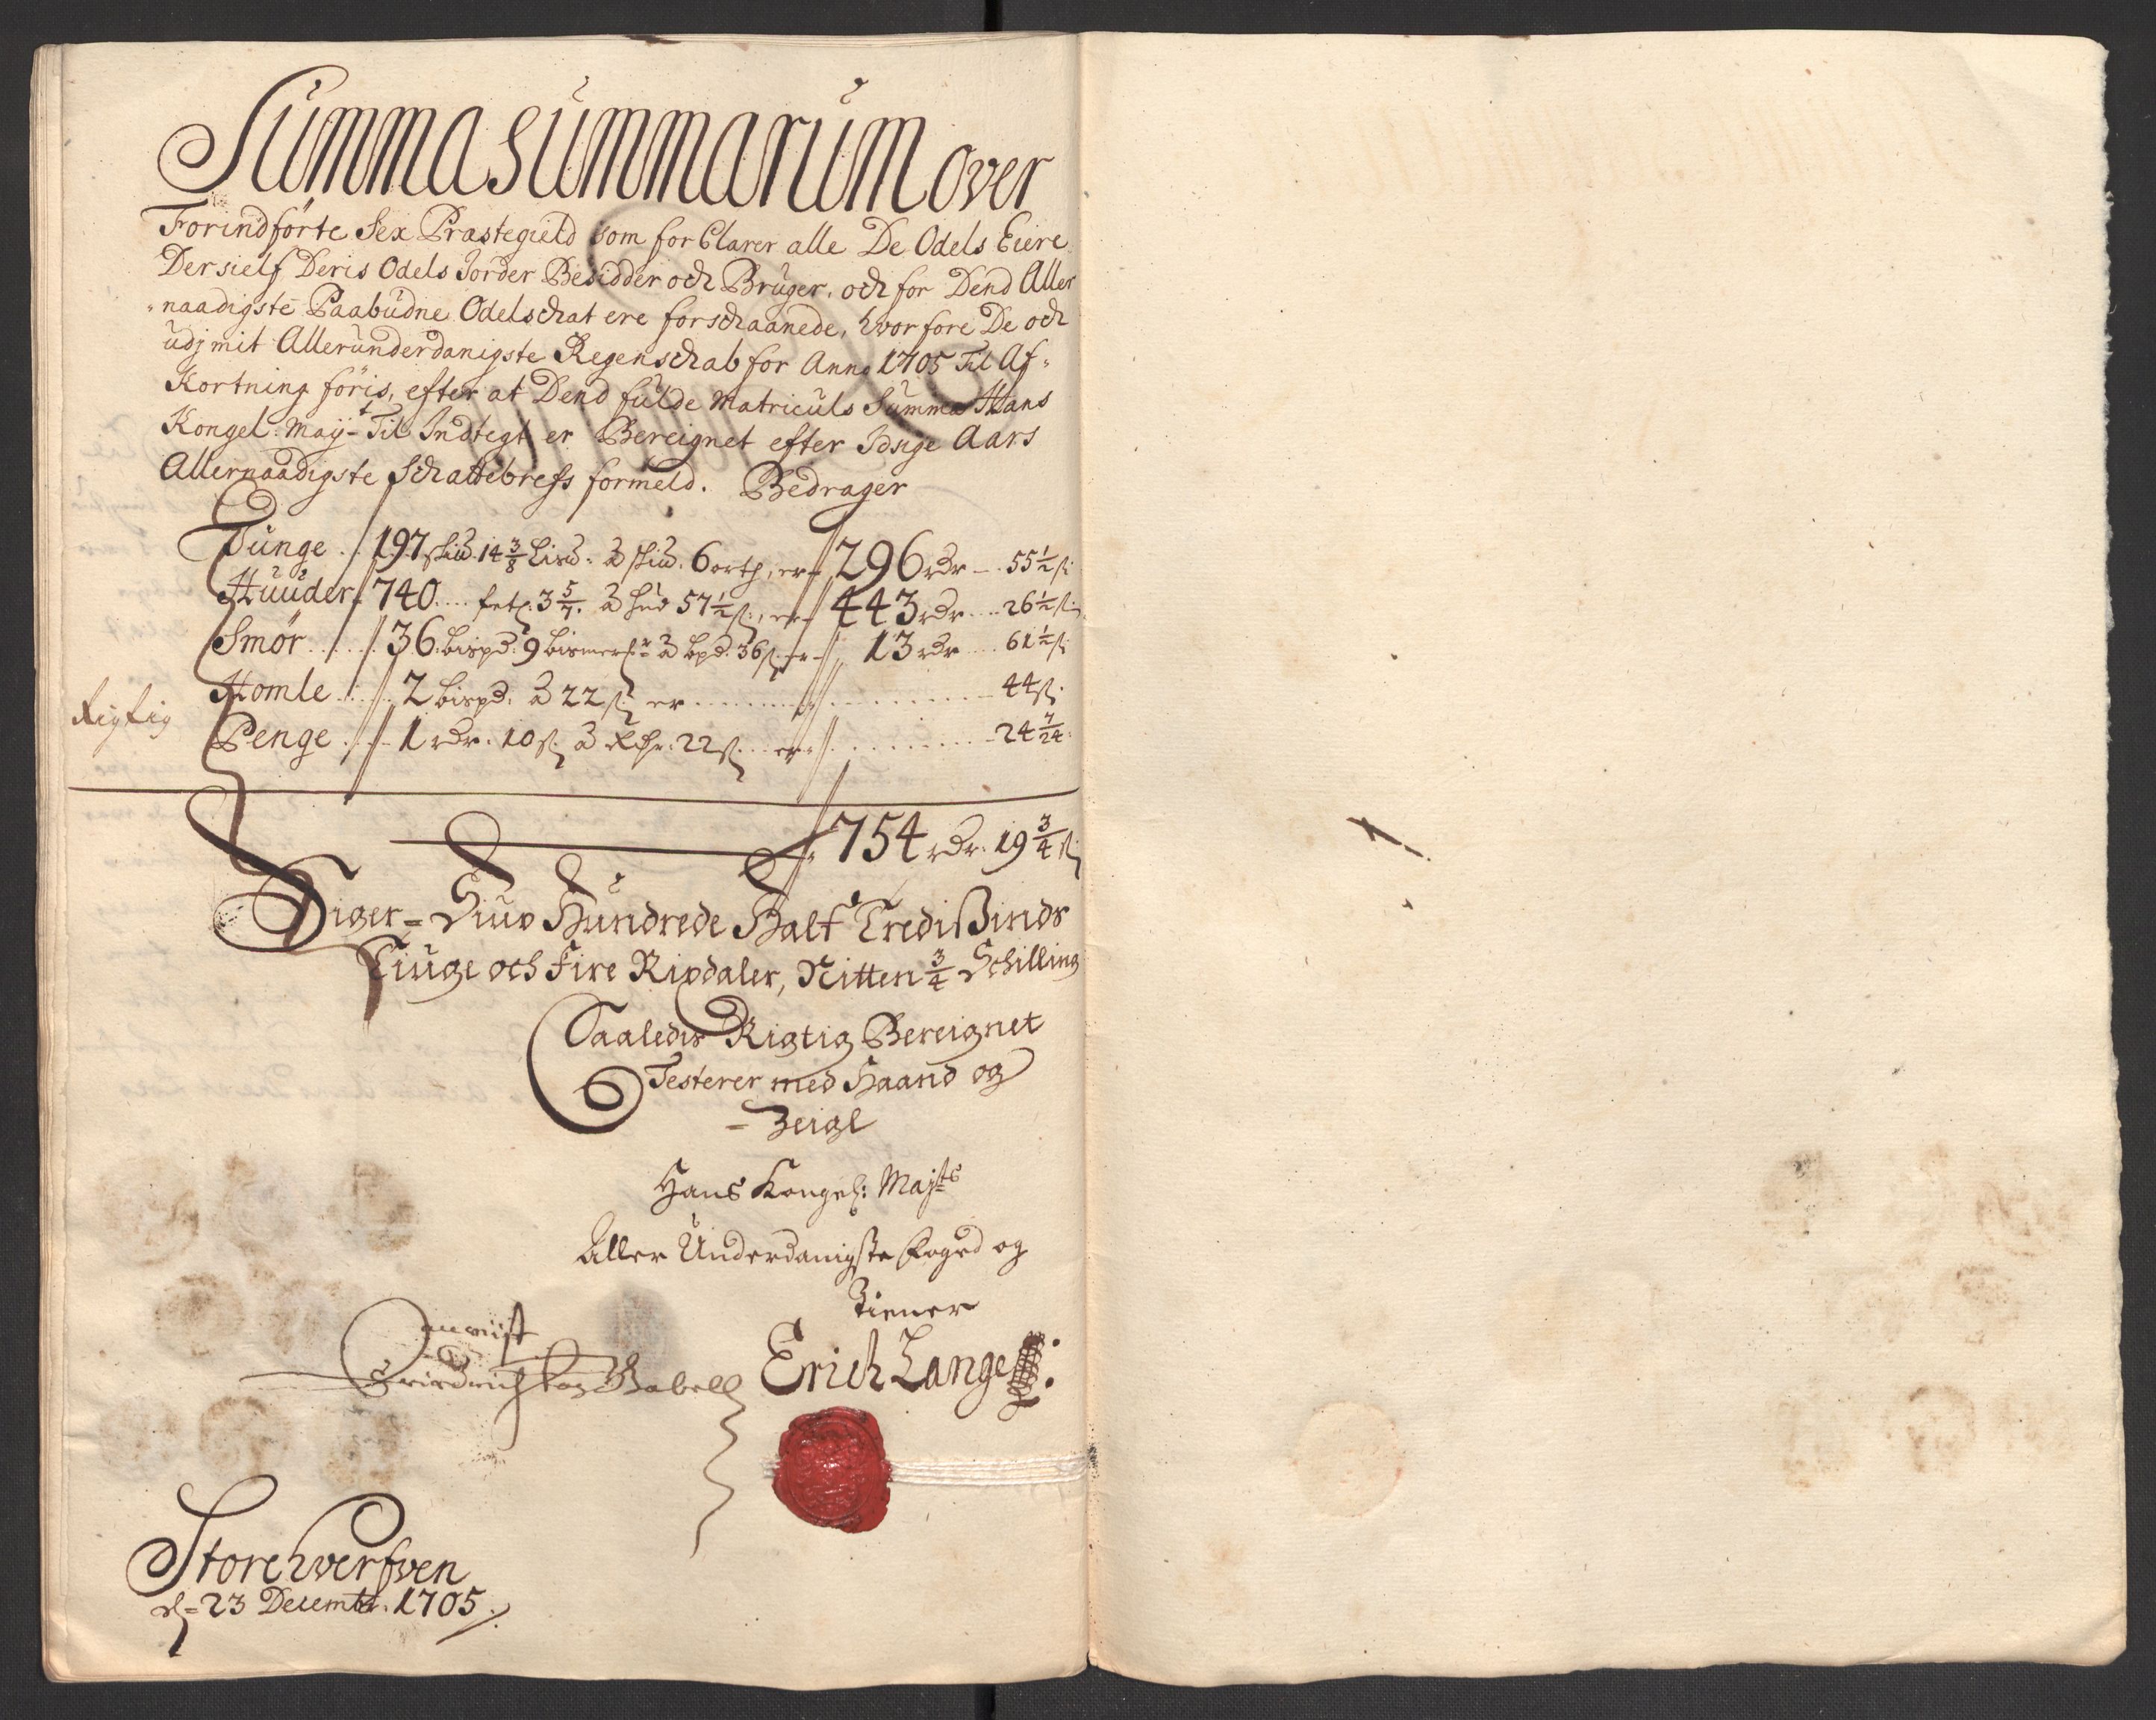 Summa Summarum over
Forindförte Sex Præstegield som forClarer alle De Odels Eiere
Der sielf Deris Odels Jorder Besidder och Bruger, och for Dend Aller
naadigste Paabudne Odelschat ere forschaanede, hvorfore De och
udj mit Allerunderdanigste Regenschab for Anno 1705 Til Af-
Kortning föris, efter at Dend fulde Matriculs Summa Hans
Kongel: May-t Til Indtegt er Bereignet efter Idsige Aars
Allernaadigste Schattebrefs formeld. Bedrager
Tunge .. 197 skud. 14 3/8 Lisd: à skud. 6 orth, er 296 rdr - 55 1/2 s:
Huuder 740 .... 3 5/7. à hud 57 1/2 s:, er 443 rdr ... 26 1/2 s:
Smör .... 36. bispd: 9 bismer à bpd. 36 s: er 13 rdr ... 61 1/2 s:
Homle .... 2 bispd: à 22 s: er .... 44 s:
Rigtig
Penge .. 1 rdr. 10 s: à 22 s: er .... 24 7/24:
754 rdr. 19 3/4 s:
Siger = Siuv Hundrede Halftredisinds
Tiuge och Fire Rixdaler, Nitten 3/4 Schilling
Saaledis Rigtig Bereignet
Testerer med Haand og
= Zeigl
Hans Kongel: Majts
Aller Underdanigste Foged og
Tiener
Erich Lange
Storehverfven
d= 23 Decembr. 1705.